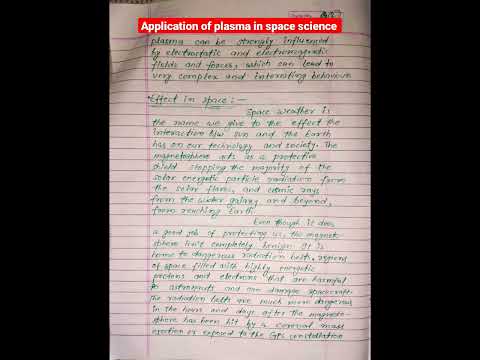 Application of plasma in space science
plasma can be strongly influenced
by electrostatic and electromagnetic
fields and forces, which can lead to
very complex and interesting behaviour
Effect in space :-
Space weather is
the name we give to the effect the
interaction b/w sun and the Earth
has on our technology and society. The
magnetosphere acts as a protective
shield stopping the majority of the
solar energetic particle radiation form
the solar flares, and cosmic rays
from the wider galaxy and beyond,
form reaching Earth
Even though it does
a good job of protecting us, the magnet-
sphere isn't completely benign. It is
home to dangerous radiation belts, regions
of space filled with highly energetic
protons and electrons that are harmful
to astronauts and can damage spacecraft.
the radiation belts are much more dangerous
in the hours and days after the magneto-
sphere has been hit by a coronal mass
ejection or exposed to the GPS constellation